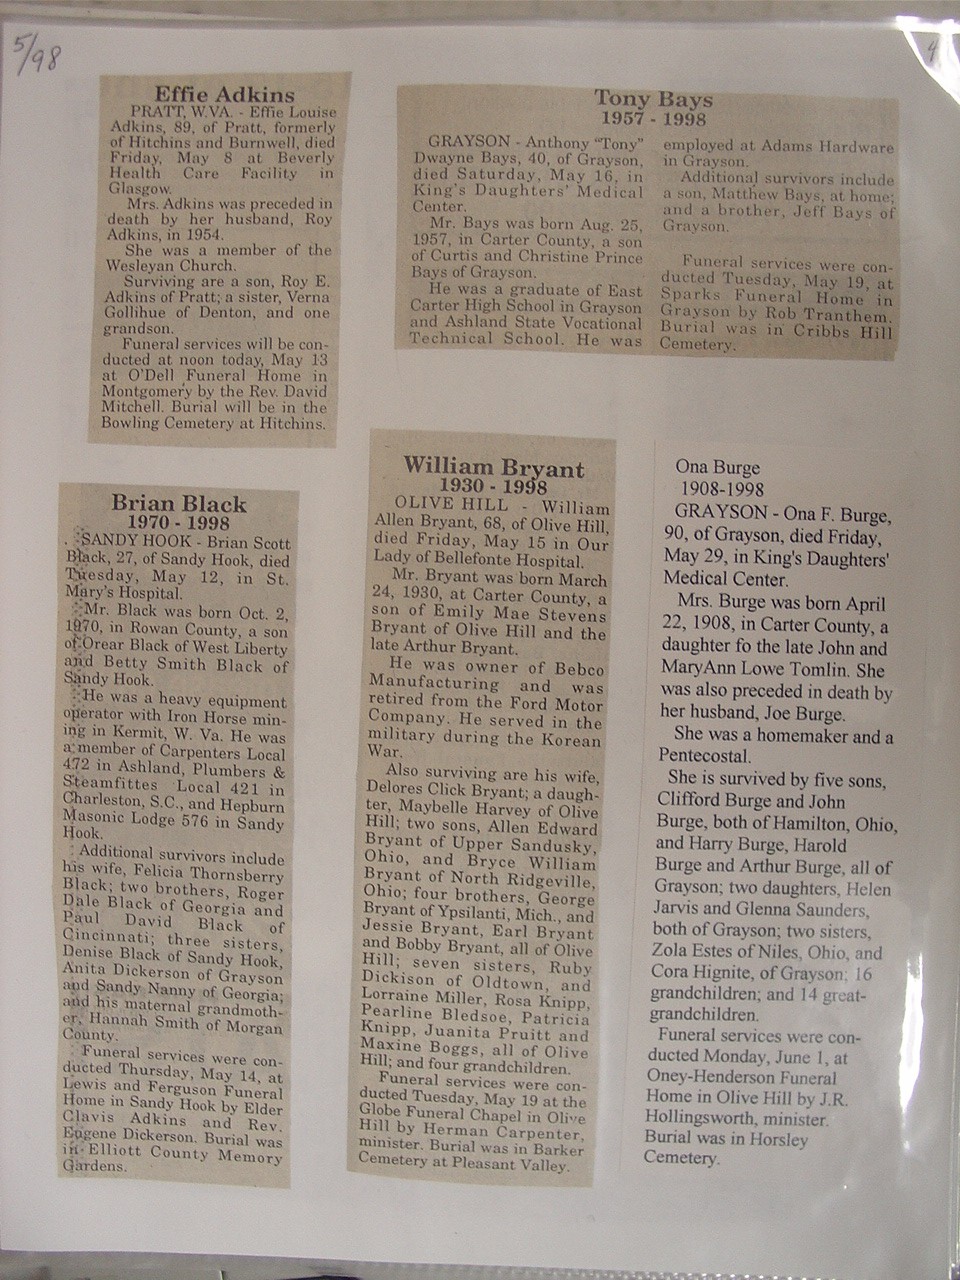 5/98
4
Effie Adkins
PRATT, W.VA. - Effie Louise
Adkins, 89, of Pratt, formerly
of Hitchins and Burnwell, died
Friday, May 8 at Beverly
Health Care Facility in
Glasgow.
Mrs. Adkins was preceded in
death by her husband, Roy
Adkins, in 1954.
She was a member of the
Wesleyan Church.
Surviving are a son, Roy E.
Adkins of Pratt; a sister, Verna
Gollihue of Denton, and one
grandson.
Funeral services will be con-
ducted at noon today, May 13
at O'Dell Funeral Home in
Montgomery by the Rev. David
Mitchell. Burial will be in the
Bowling Cemetery at Hitchins.
Tony Bays
1957 - 1998
GRAYSON - Anthony "Tony"
Dwayne Bays, 40, of Grayson,
died Saturday, May 16, in
King's Daughters' Medical
Center.
Mr. Bays was born Aug. 25,
1957, in Carter County, a son
of Curtis and Christine Prince
Bays of Grayson.
He was a graduate of East
Carter High School in Grayson
and Ashland State Vocational
Technical School. He was
employed at Adams Hardware
in Grayson.
Additional survivors include
a son, Matthew Bays, at home;
and a brother, Jeff Bays of
Grayson.
Funeral services were con-
ducted Tuesday, May 19, at
Sparks Funeral Home in
Grayson by Rob Tranthem.
Burial was in Cribbs Hill
Cemetery.
Brian Black
1970 - 1998
SANDY HOOK - Brian Scott
Black, 27, of Sandy Hook, died
Tuesday, May 12, in St.
Mary's Hospital.
Mr. Black was born Oct. 2,
1970, in Rowan County, a son
of Orear Black of West Liberty
and Betty Smith Black of
Sandy Hook.
He was a heavy equipment
operator with Iron Horse min-
ing in Kermit, W. Va. He was
a member of Carpenters Local
472 in Ashland, Plumbers &
Steamfittes Local 421 in
Charleston, S.C., and Hepburn
Masonic Lodge 576 in Sandy
Hook.
Additional survivors include
his wife, Felicia Thornsberry
Black; two brothers, Roger
Dale Black of Georgia and
Paul David Black of
Cincinnati; three sisters,
Denise Black of Sandy Hook,
Anita Dickerson of Grayson
and Sandy Nanny of Georgia;
and his maternal grandmoth-
er, Hannah Smith of Morgan
County.
Funeral services were con-
ducted Thursday, May 14, at
Lewis and Ferguson Funeral
Home in Sandy Hook by Elder
Clavis Adkins and Rev.
Eugene Dickerson. Burial was
in Elliott County Memory
Gardens.
William Bryant
1930 - 1998
OLIVE HILL - William
Allen Bryant, 68, of Olive Hill,
died Friday, May 15 in Our
Lady of Bellefonte Hospital.
Mr. Bryant was born March
24, 1930, at Carter County, a
son of Emily Mae Stevens
Bryant of Olive Hill and the
late Arthur Bryant.
He was owner of Bebco
Manufacturing and was
retired from the Ford Motor
Company. He served in the
military during the Korean
War.
Also surviving are his wife,
Delores Click Bryant; a daugh-
ter, Maybelle Harvey of Olive
Hill; two sons, Allen Edward
Bryant of Upper Sandusky,
Ohio, and Bryce William
Bryant of North Ridgeville,
Ohio; four brothers, George
Bryant of Ypsilanti, Mich., and
Jessie Bryant, Earl Bryant
and Bobby Bryant, all of Olive
Hill; seven sisters, Ruby
Dickison of Oldtown, and
Lorraine Miller, Rosa Knipp,
Pearline Bledsoe, Patricia
Knipp, Juanita Pruitt and
Maxine Boggs, all of Olive
Hill; and four grandchildren.
Funeral services were con-
ducted Tuesday, May 19 at the
Globe Funeral Chapel in Olive
Hill by Herman Carpenter,
minister. Burial was in Barker
Cemetery at Pleasant Valley.
Ona Burge
1908-1998
GRAYSON - Ona F. Burge,
90, of Grayson, died Friday,
May 29, in King's Daughters'
Medical Center.
Mrs. Burge was born April
22, 1908, in Carter County, a
daughter fo the late John and
MaryAnn Lowe Tomlin. She
was also preceded in death by
her husband, Joe Burge.
She was a homemaker and a
Pentecostal.
She is survived by five sons,
Clifford Burge and John
Burge, both of Hamilton, Ohio,
and Harry Burge, Harold
Burge and Arthur Burge, all of
Grayson; two daughters, Helen
Jarvis and Glenna Saunders,
both of Grayson; two sisters,
Zola Estes of Niles, Ohio, and
Cora Hignite, of Grayson; 16
grandchildren; and 14 great-
grandchildren.
Funeral services were con-
ducted Monday, June 1, at
Oney-Henderson Funeral
Home in Olive Hill by J.R.
Hollingsworth, minister.
Burial was in Horsley
Cemetery.